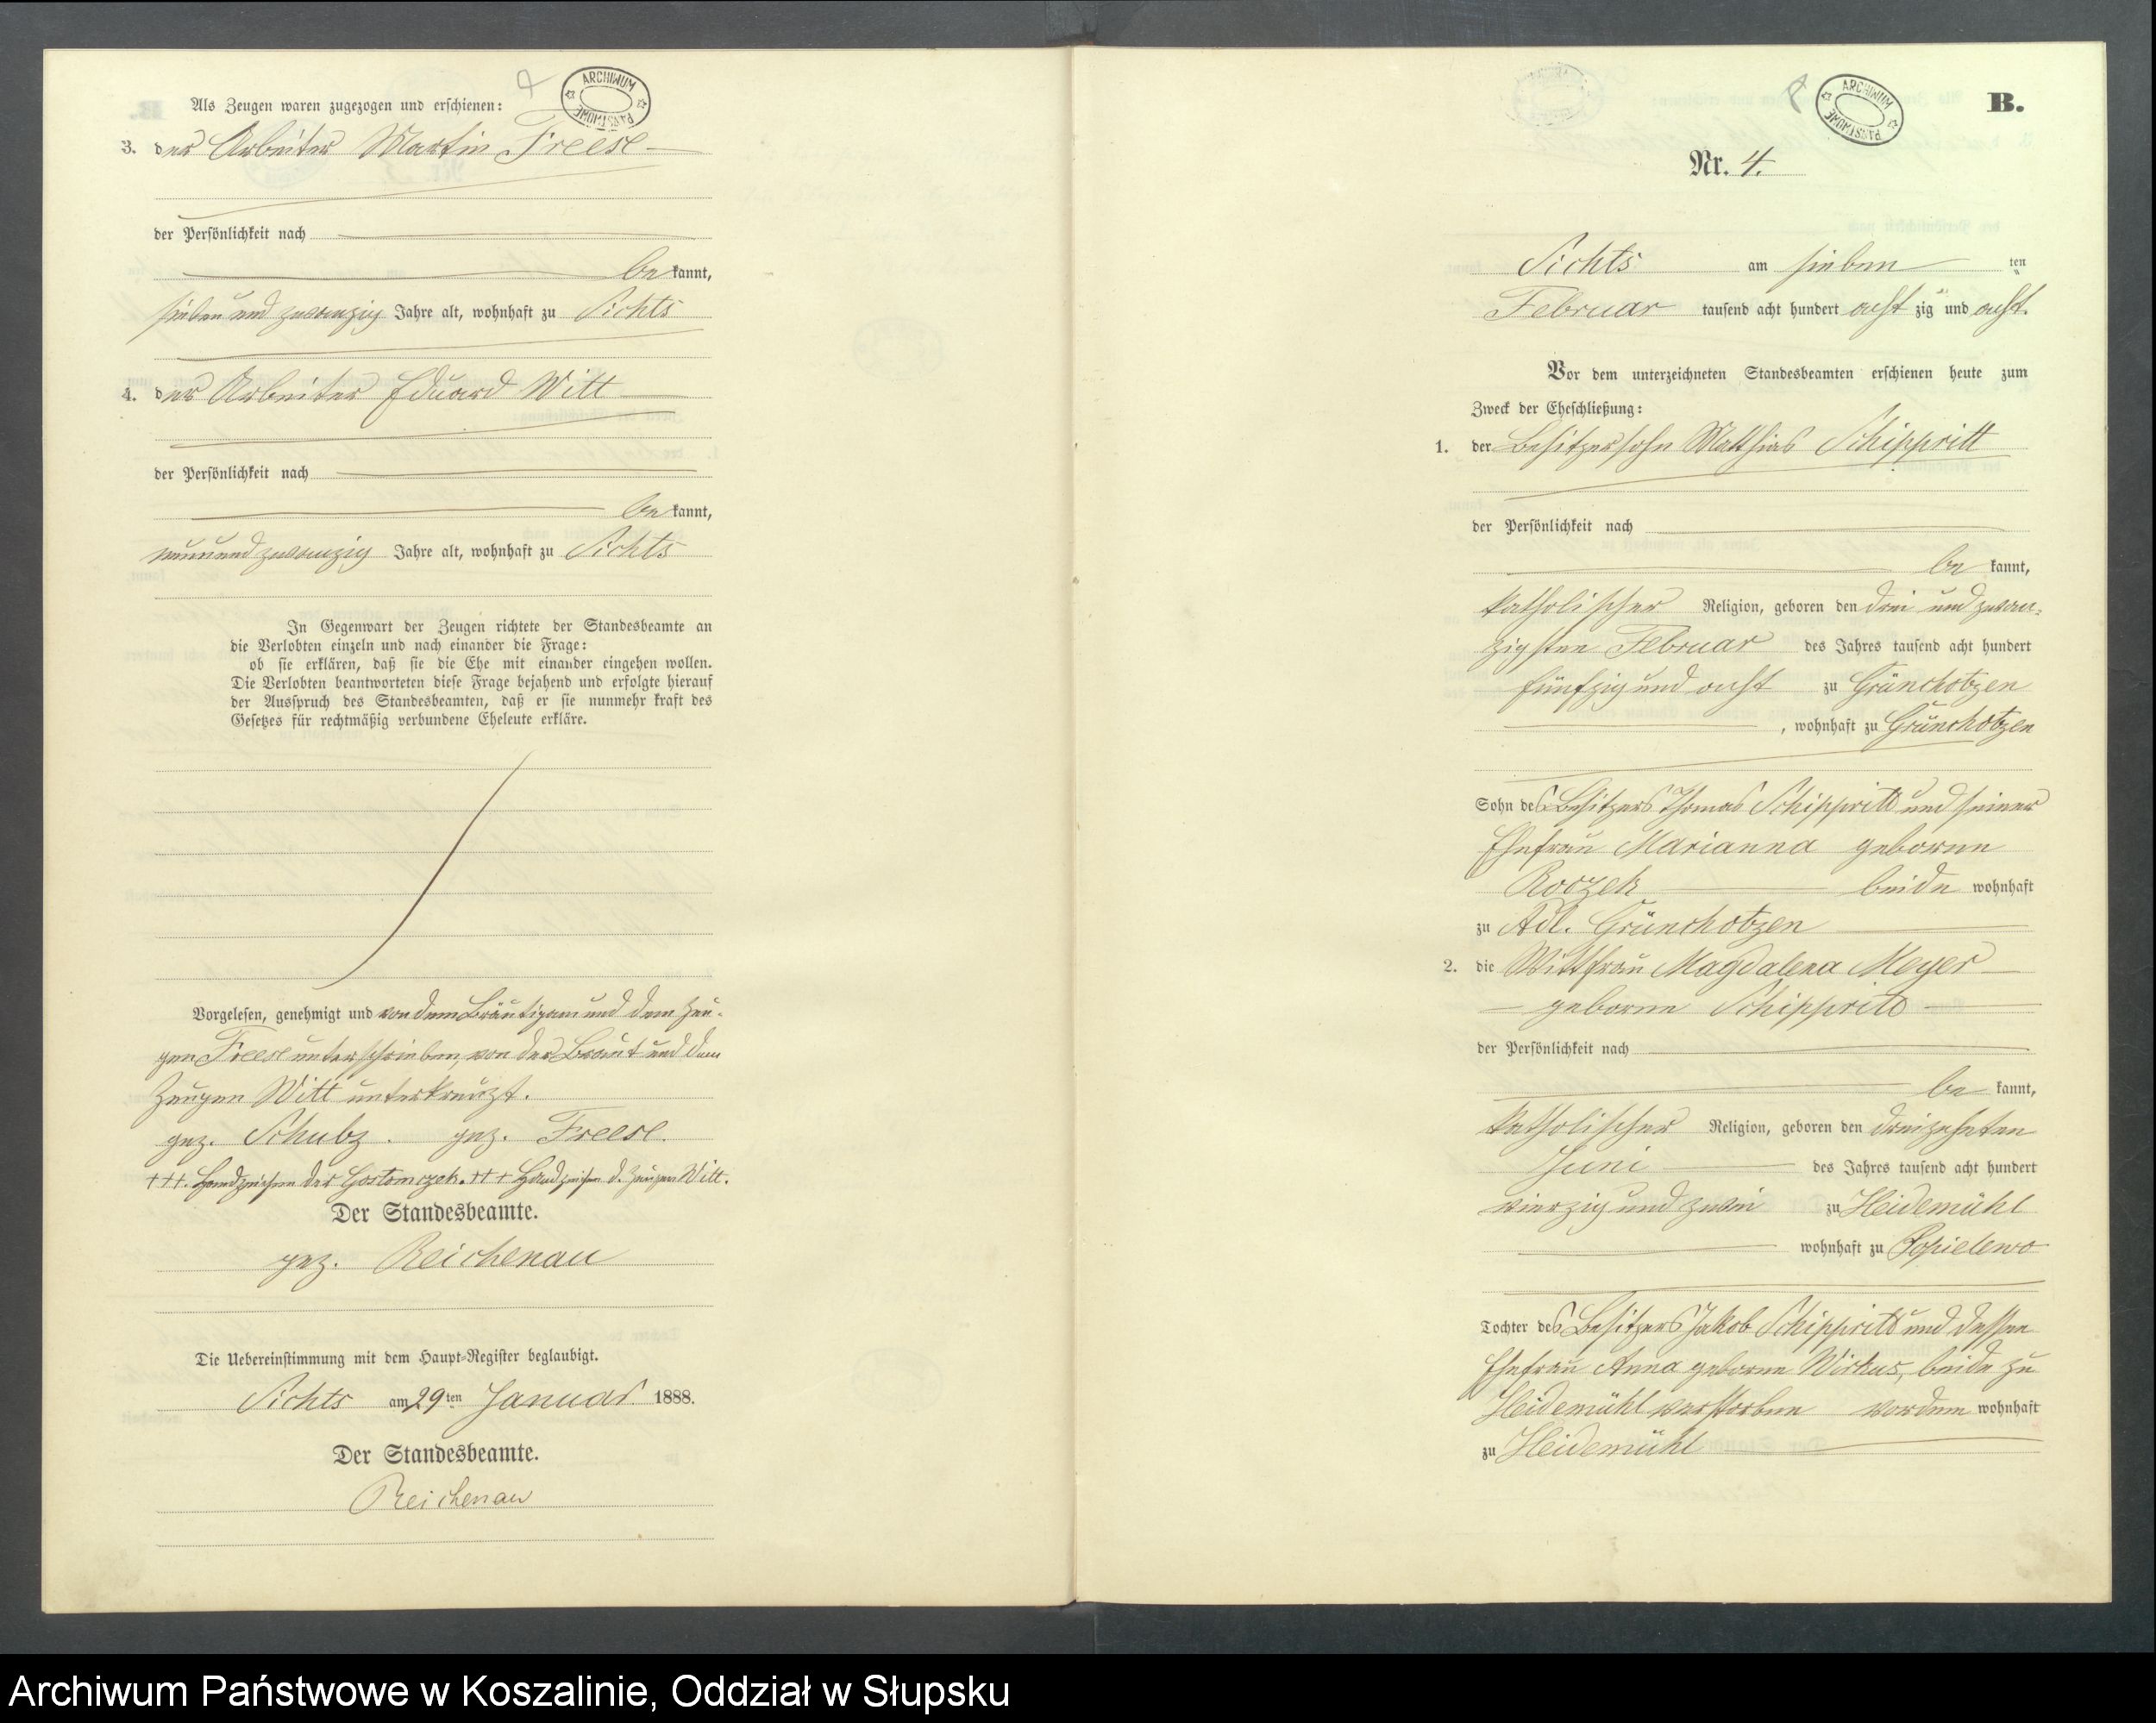 Als Zeugen waren zugezogen und erschienen:
ARCHIWUM PAŃSTWOWE
3. der Arbeiter Martin Freese
der Persönlichkeit nach
bekannt,
sieben und zwanzig Jahre alt, wohnhaft zu Sichts
4. der Arbeiter Eduard Witt
der Persönlichkeit nach
bekannt,
neunundzwanzig Jahre alt, wohnhaft zu Sichts
In Gegenwart der Zeugen richtete der Standesbeamte an
die Verlobten einzeln und nach einander die Frage:
ob sie erklären, daß sie die Ehe mit einander eingehen wollen.
Die Verlobten beantworteten diese Frage bejahend und erfolgte hierauf
der Ausspruch des Standesbeamten, daß er sie nunmehr kraft des
Gesetzes für rechtmäßig verbundene Eheleute erkläre.
Vorgelesen, genehmigt und von dem Bräutigam und dem Zeu-
gen Freese unterschrieben, von der Braut und dem
Zeugen Witt unterkreuzt.
gez. Schulz. gez. Freese.
+++. Handzeichen der Gostomczek. +++ Handzeichen d. Zeugen Witt.
Der Standesbeamte.
gez. Reichenau
Die Uebereinstimmung mit dem Haupt-Register beglaubigt.
Sichts am 29ten Januar 1888.
Der Standesbeamte.
Reichenau
ARCHIWUM PAŃSTWOWE
B.
Nr. 4.
Sichts am sieben ten
Februar tausend acht hundert acht zig und acht.
Vor dem unterzeichneten Standesbeamten erschienen heute zum
Zweck der Eheschließung:
1. der Besitzersohn Matthias Schippritt
der Persönlichkeit nach
be kannt,
katholischer Religion, geboren den drei und zwan-
zigsten Februar des Jahres tausend acht hundert
fünfzig und acht zu Grünchotzen
, wohnhaft zu Grünchotzen
Sohn des Besitzers Thomas Schippritt und seiner
Ehefrau Marianna geborene
Roczek beide wohnhaft
zu Adl. Grünchotzen
2. die Wittfrau Magdalena Meyer
geborene Schippritt
der Persönlichkeit nach
be kannt,
katholischer Religion, geboren den dreizehnten
Juni des Jahres tausend acht hundert
vierzig und zwei zu Heidemühl
wohnhaft zu Popielewo
Tochter des Besitzers Jakob Schippritt und dessen
Ehefrau Anna geborene Wirkus, beide zu
Heidemühl verstorben vordem wohnhaft
zu Heidemühl
Archiwum Państwowe w Koszalinie, Oddział w Słupsku